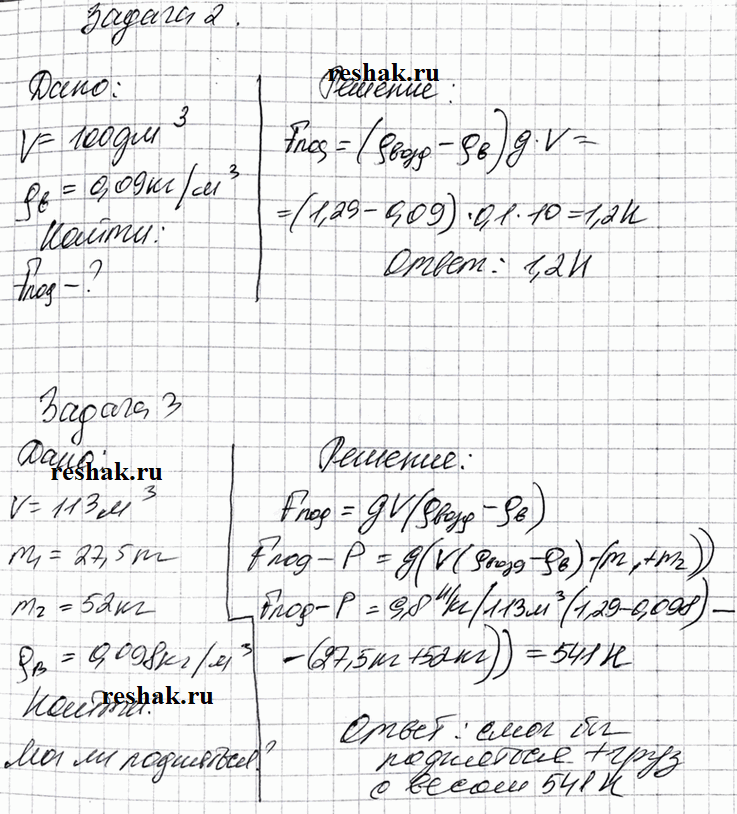 Задача 2.
reshak.ru
Дано:
V = 100дм³
ρв = 0,09кг/м³
Найти:
Fпод - ?
Решение:
Fпод = (ρвозд - ρв) g · V =
= (1,29 - 0,09) · 0,1 · 10 = 1,2Н
Ответ: 1,2Н
Задача 3
Дано:
reshak.ru
V = 113м³
m₁ = 27,5кг
m₂ = 52кг
ρв = 0,098кг/м³
reshak.ru
Найти:
Мог ли подняться?
Решение:
Fпод = gV(ρвозд - ρв)
Fпод - P = g(V(ρвозд - ρв) - (m₁ + m₂))
Fпод - P = 9,8 Н/кг (113м³ (1,29 - 0,098) -
- (27,5кг + 52кг)) = 541Н
Ответ: смог бы
подняться + груз
с весом 541Н